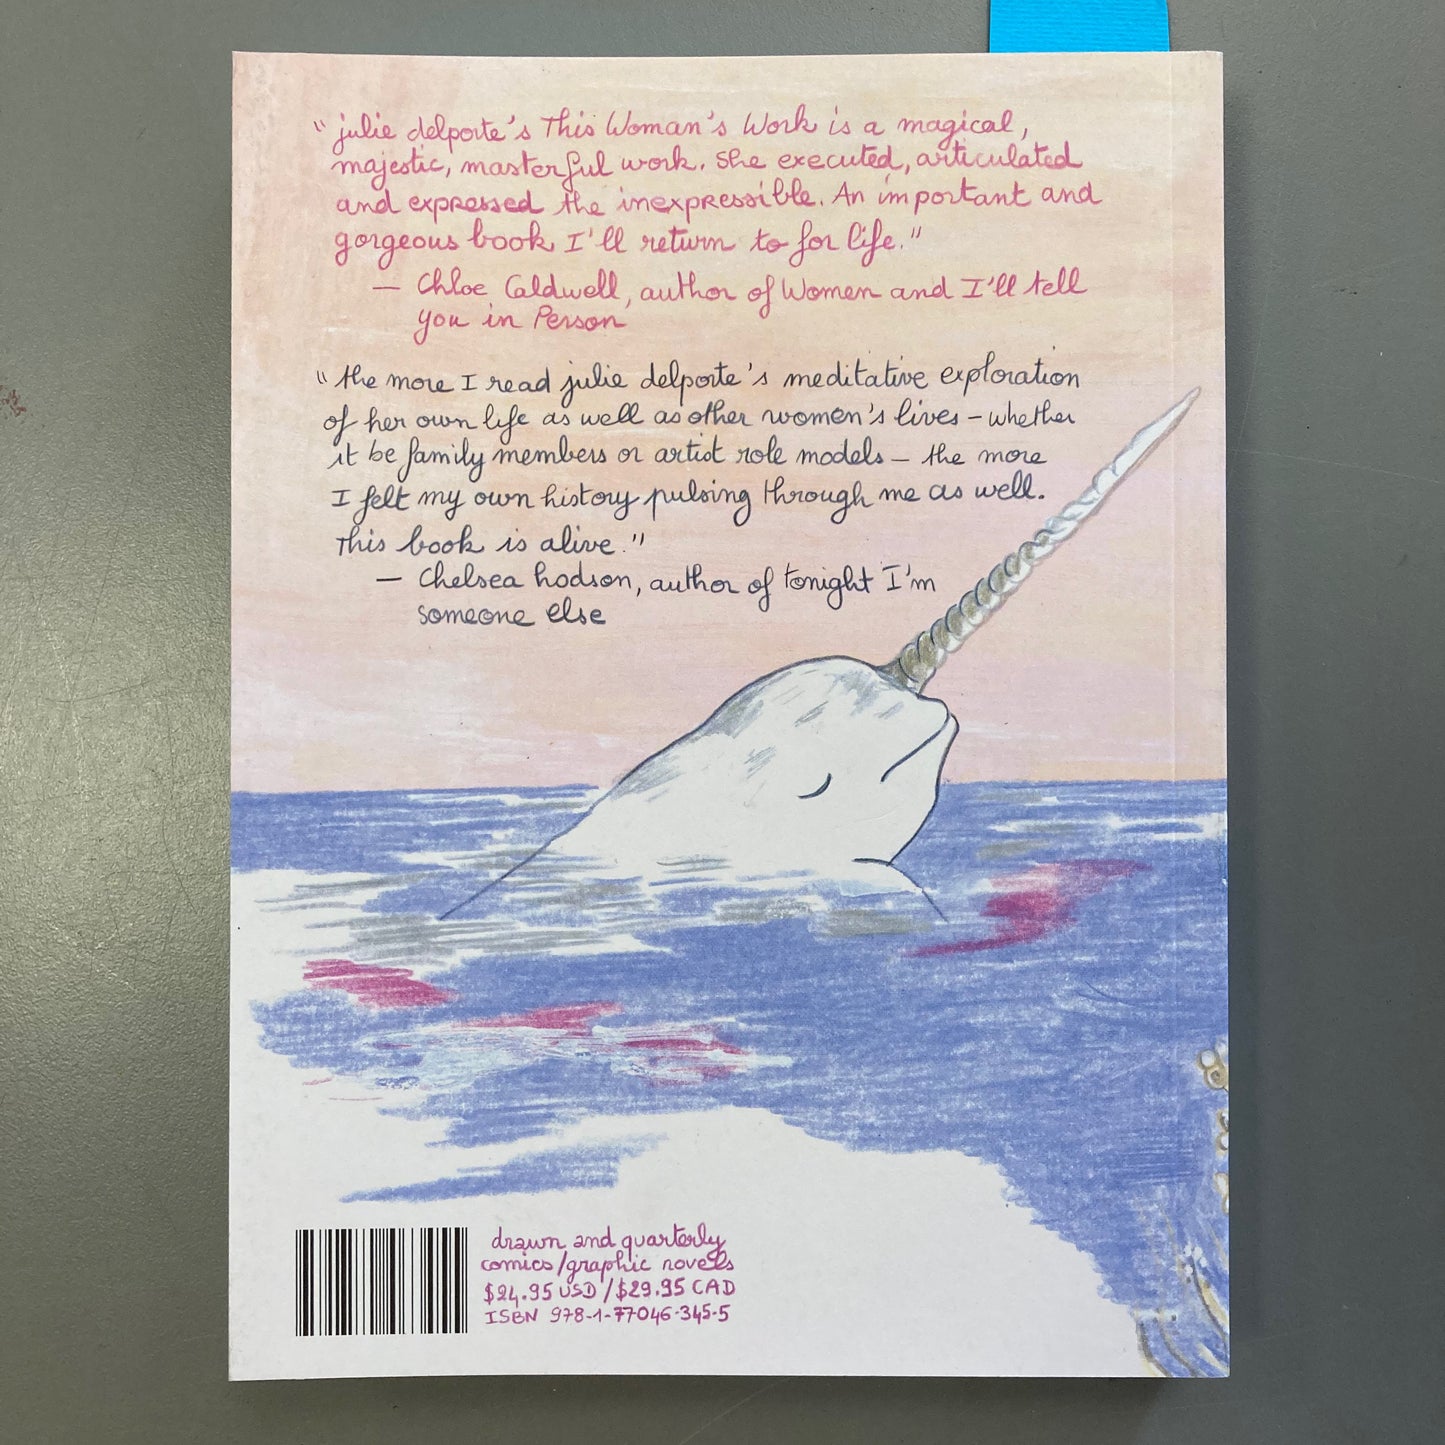 "julie delporte's This Woman's Work is a magical,
majestic, masterful work. She executed, articulated
and expressed the inexpressible. An important and
gorgeous book I'll return to for life."
— Chloe Caldwell, author of Women and I'll tell
you in Person
"the more I read julie delporte's meditative exploration
of her own life as well as other women's lives – whether
it be family members or artist role models – the more
I felt my own history pulsing through me as well.
This book is alive."
— Chelsea hodson, author of tonight I'm
someone else
drawn and quarterly
comics/graphic novels
$24.95 USD/$29.95 CAD
ISBN 978-1-77046-345-5